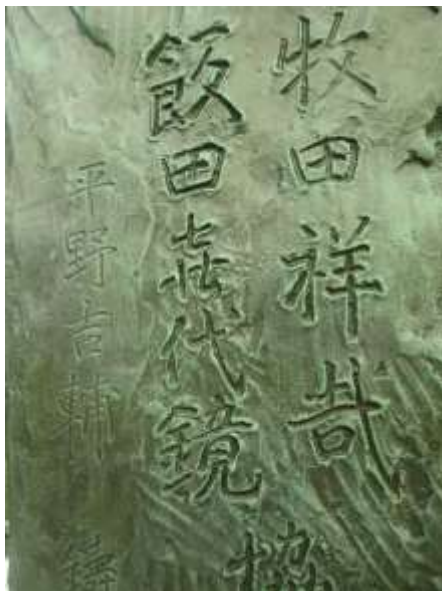 牧田祥哉
飯田喜代鏡
協
平野吉輔 鑄